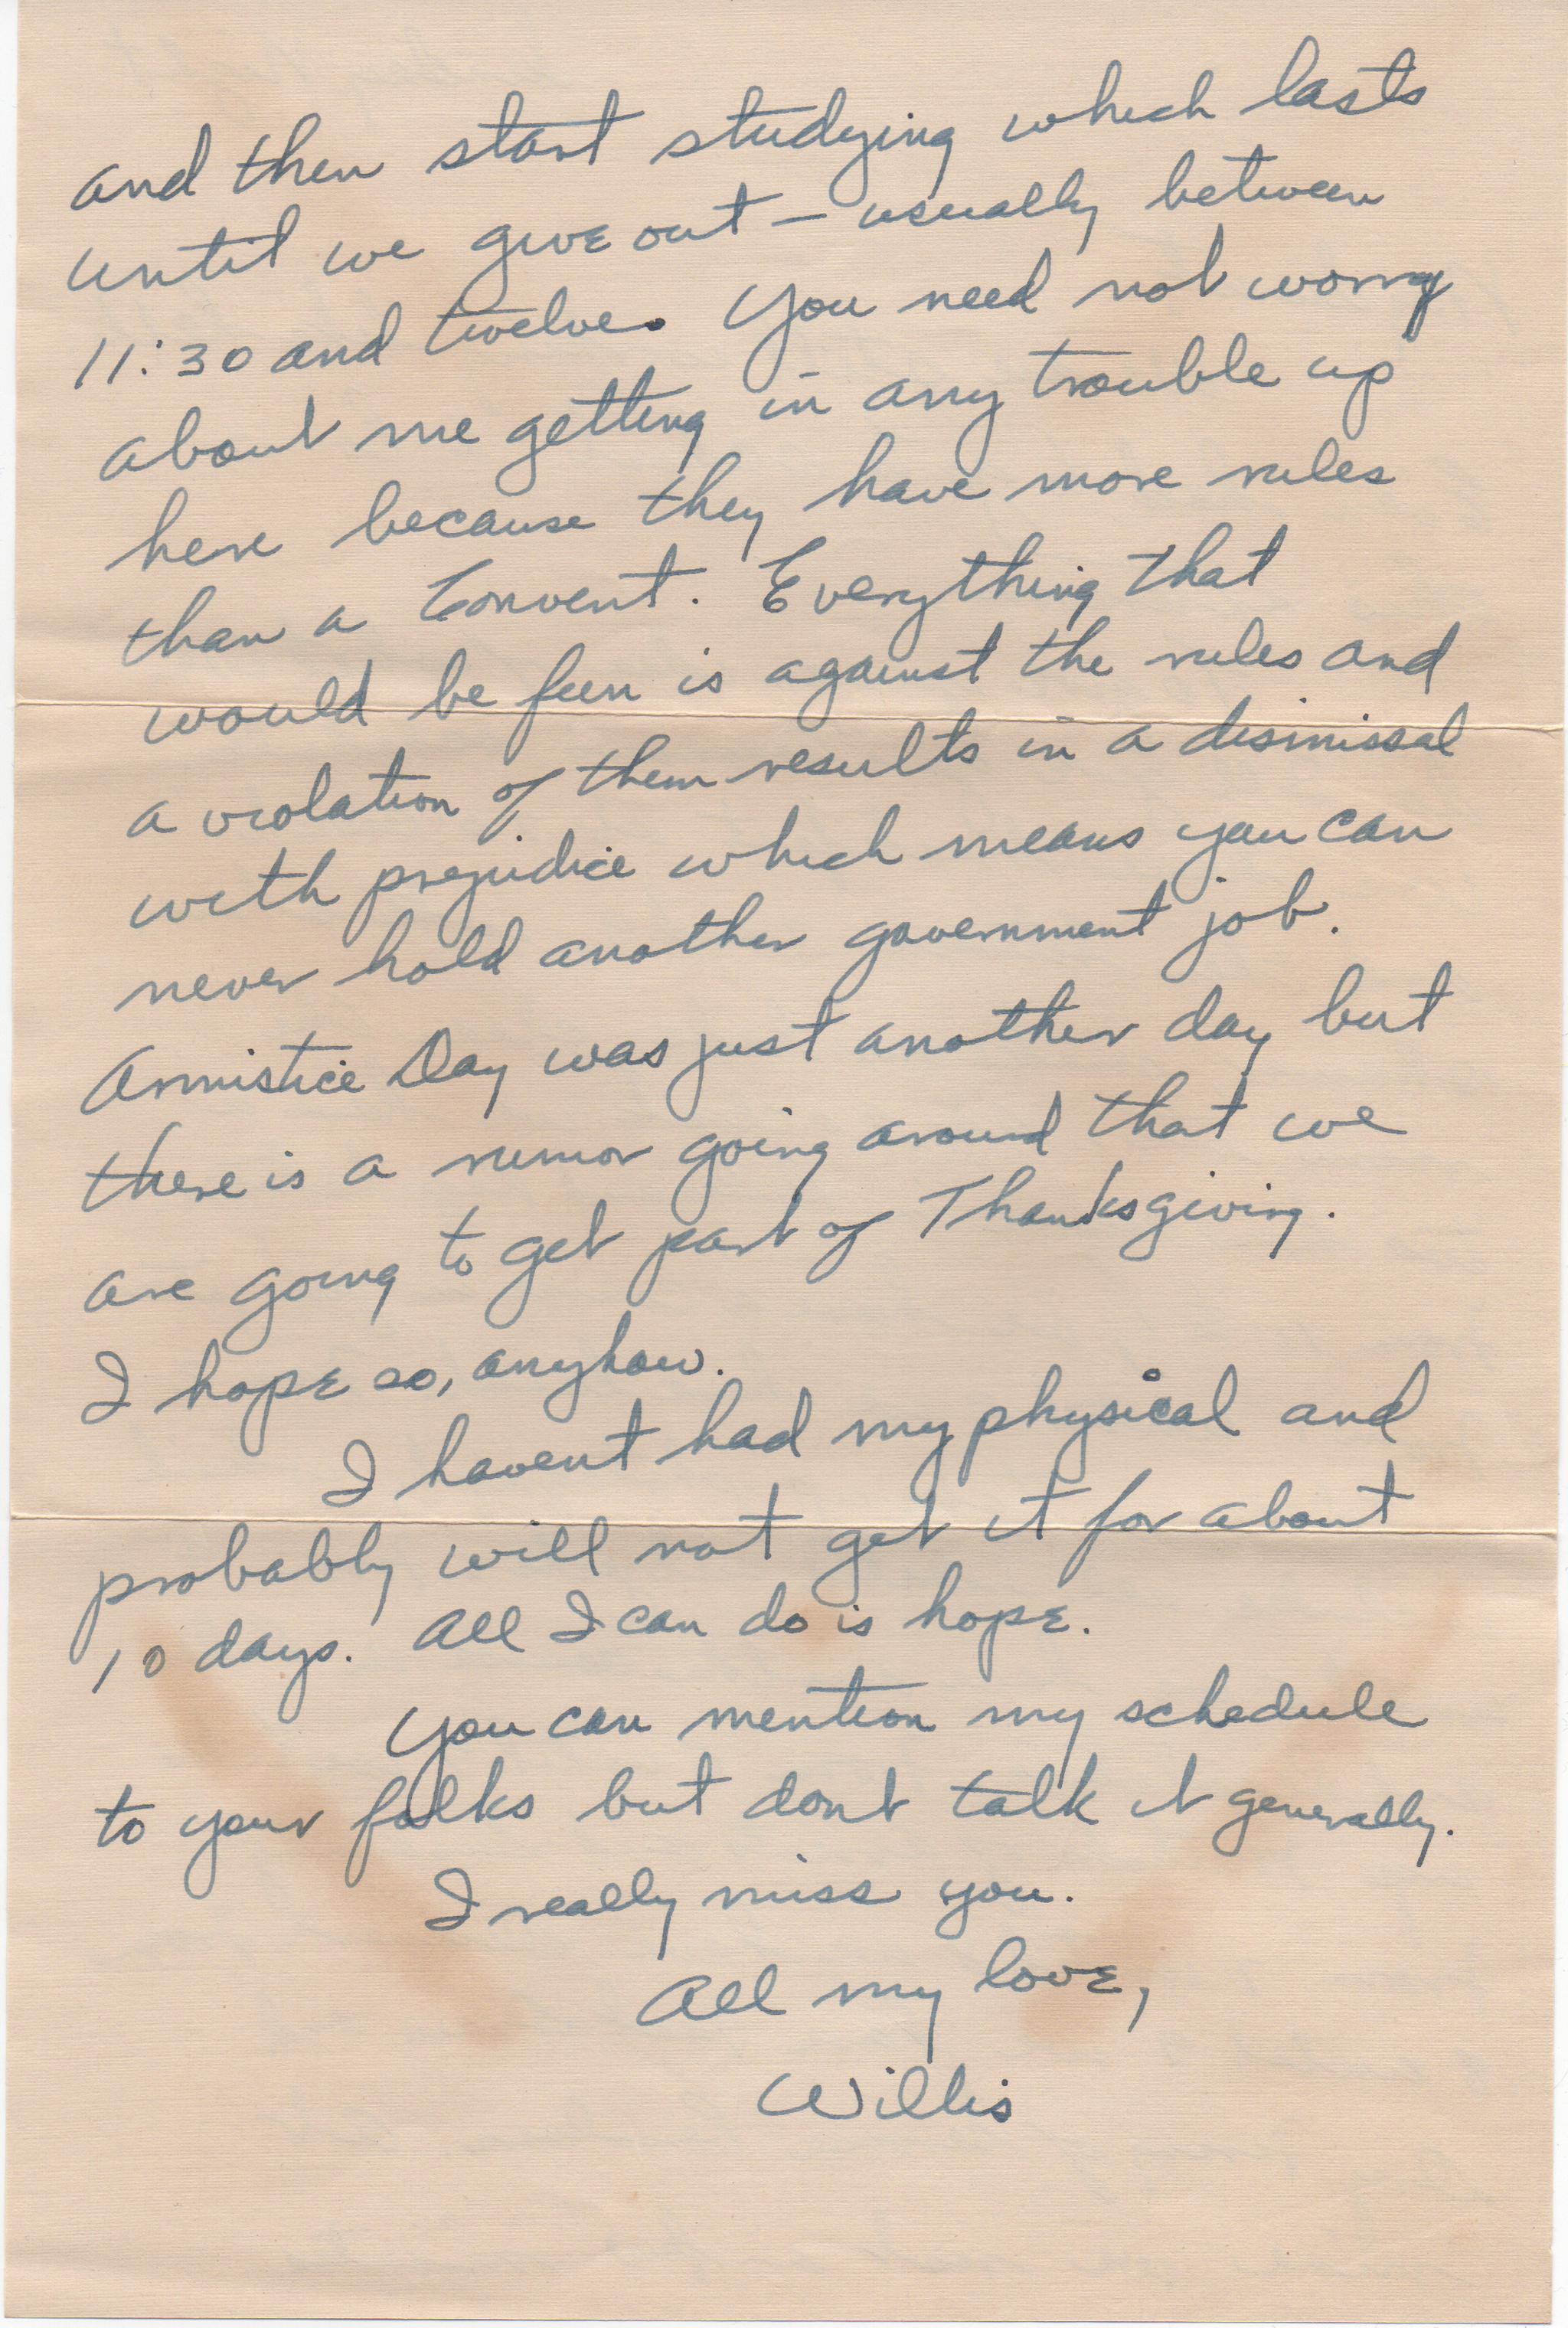 and then start studying which lasts
until we give out – usually between
11:30 and twelve. You need not worry
about me getting in any trouble up
here because they have more rules
than a Convent. Everything that
would be fun is against the rules and
a violation of them results in a dismissal
with prejudice which means you can
never hold another government job.
Armistice Day was just another day but
there is a rumor going around that we
are going to get part of Thanksgiving.
I hope so, anyhow.
I havent had my physical and
probably will not get it for about
10 days. All I can do is hope.
You can mention my schedule
to your folks but dont talk it generally.
I really miss you.
All my love,
Willis